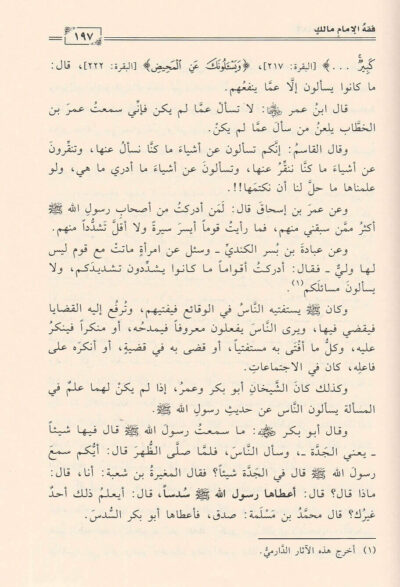 فقهُ الإمامِ مالكٍ
١٩٧
كَبِيرٌ ... ﴾ [البقرة: ٢١٧]، ﴿وَيَسْـَٔلُونَكَ عَنِ الْمَحِيضِ﴾ [البقرة: ٢٢٢]، قال:
ما كانوا يسألون إلَّا عمَّا ينفعُهم.
قال ابنُ عمر ﷺ: لا تسألْ عمَّا لم يكن فإنِّي سمعتُ عمرَ بن
الخطَّاب يلعنُ من سألَ عمَّا لم يكنْ.
وقال القاسمُ: إنَّكم تسألون عن أشياءَ ما كنَّا نسألُ عنها، وتنقِّرونَ
عن أشياءَ ما كنَّا ننقِّرُ عنها، وتسألونَ عن أشياءَ ما أدري ما هي، ولو
علمناها ما حلَّ لنا أن نكتمَها!!.
وعن عمرَ بن إسحاقَ قال: لَمَن أدركتُ من أصحابِ رسولِ الله ﷺ
أكثرُ ممَّن سبقني منهم، فما رأيتُ قوماً أيسرَ سيرةً ولا أقلَّ تشدُّداً منهم.
وعن عبادةَ بن بُسر الكنديِّ ـ وسئل عن امرأةٍ ماتتْ مع قوم ليس
لـها وليٌّ ـ فقـال: أدركتُ أقوامـاً ما كـانـوا يشدِّدون تشديدَكم، ولا
يسألونَ مسائلَكم(١).
وكان ﷺ يستفتيه النَّاسُ في الوقائع فيفتيهم، وتُرفع إليه القضايا
فيقضي فيها، ويرى النَّاسَ يفعلون معروفاً فيمدحُه، أو منكراً فينكرُ
عليه، وكلُّ ما أفْتَى به مستفتياً، أو قضى به في قضيةٍ، أو أنكرَه على
فاعلِه، كان في الاجتماعاتِ.
وكذلك كانَ الشَّيخانِ أبو بكر وعمرُ، إذا لم يكنْ لهما علمٌ في
المسألة يسألون النَّاس عن حديثِ رسولِ الله ﷺ.
وقال أبو بكر: ما سمعتُ رسولَ الله ﷺ قال فيها شيئاً
ـ يعني الجَدَّة ـ، وسأل النَّاسَ، فلمَّا صلَّى الظُّهرَ قال: أيُّكم سمعَ
رسولَ الله ﷺ قال في الجَدَّة شيئاً؟ فقال المغيرةُ بن شعبة: أنا، قال:
ماذا قال؟ قال: أعطاها رسولُ الله ﷺ سُدساً، قال: أيعلمُ ذلك أحدٌ
غيرُك؟ قال محمَّدُ بن مَسْلَمة: صدق، فأعطاها أبو بكر السُّدسَ.
(١) أخرج هذه الآثار الدَّارميُّ.